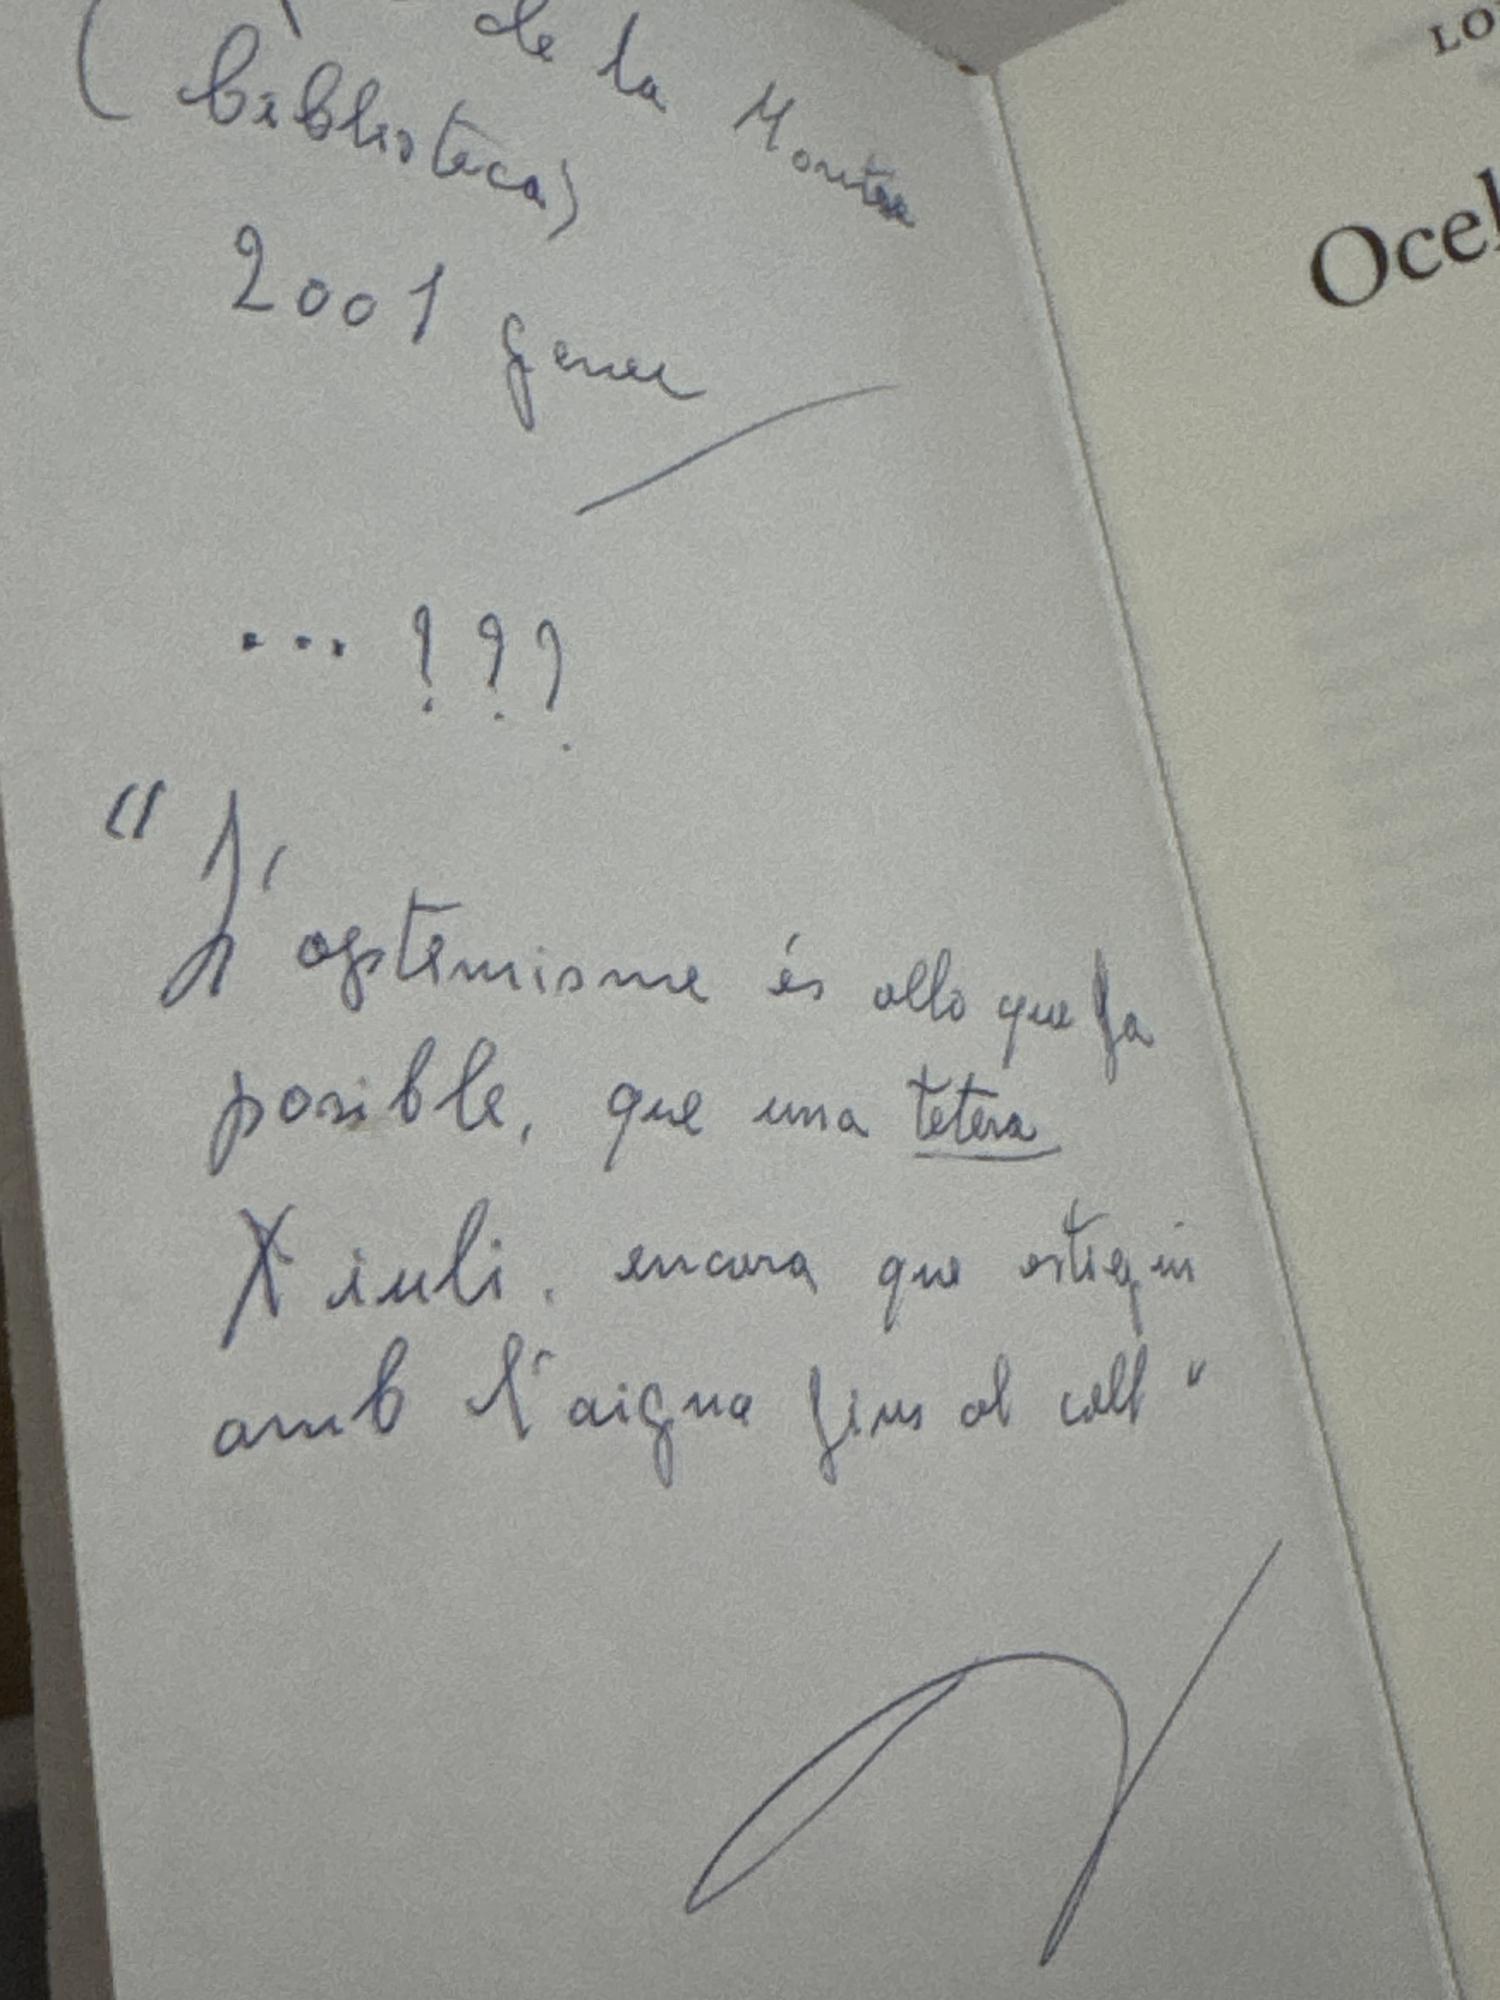 de la Montse
(biblioteca)
2001 gener
... !??
"L'optimisme és allò que fa
possible, que una tetera
Xiuli. encara que estigui
amb l'aigua fins al coll"
LO
Ocel